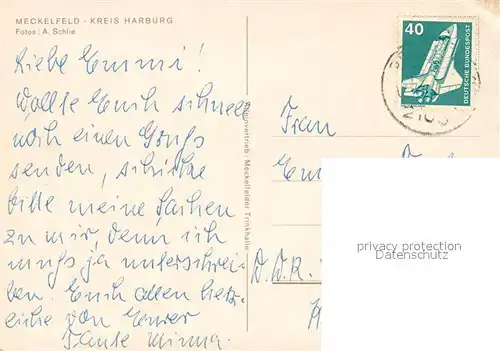 MECKELFELD - KREIS HARBURG
Fotos: A. Schlie
Liebe Emmi!
Wollte Euch schnell
noch einen Gruß
senden, schicke
bitte meine Sachen
zu mir denn ich
muß ja unterschrei-
ben. Euch allen herz-
liche von Eurer
Tante Minna.
Alleinvertrieb: Meckelfelder Trinkhalle
40
DEUTSCHE BUNDESPOST
210
Frau
Em
D.D.R.
privacy protection
Datenschutz